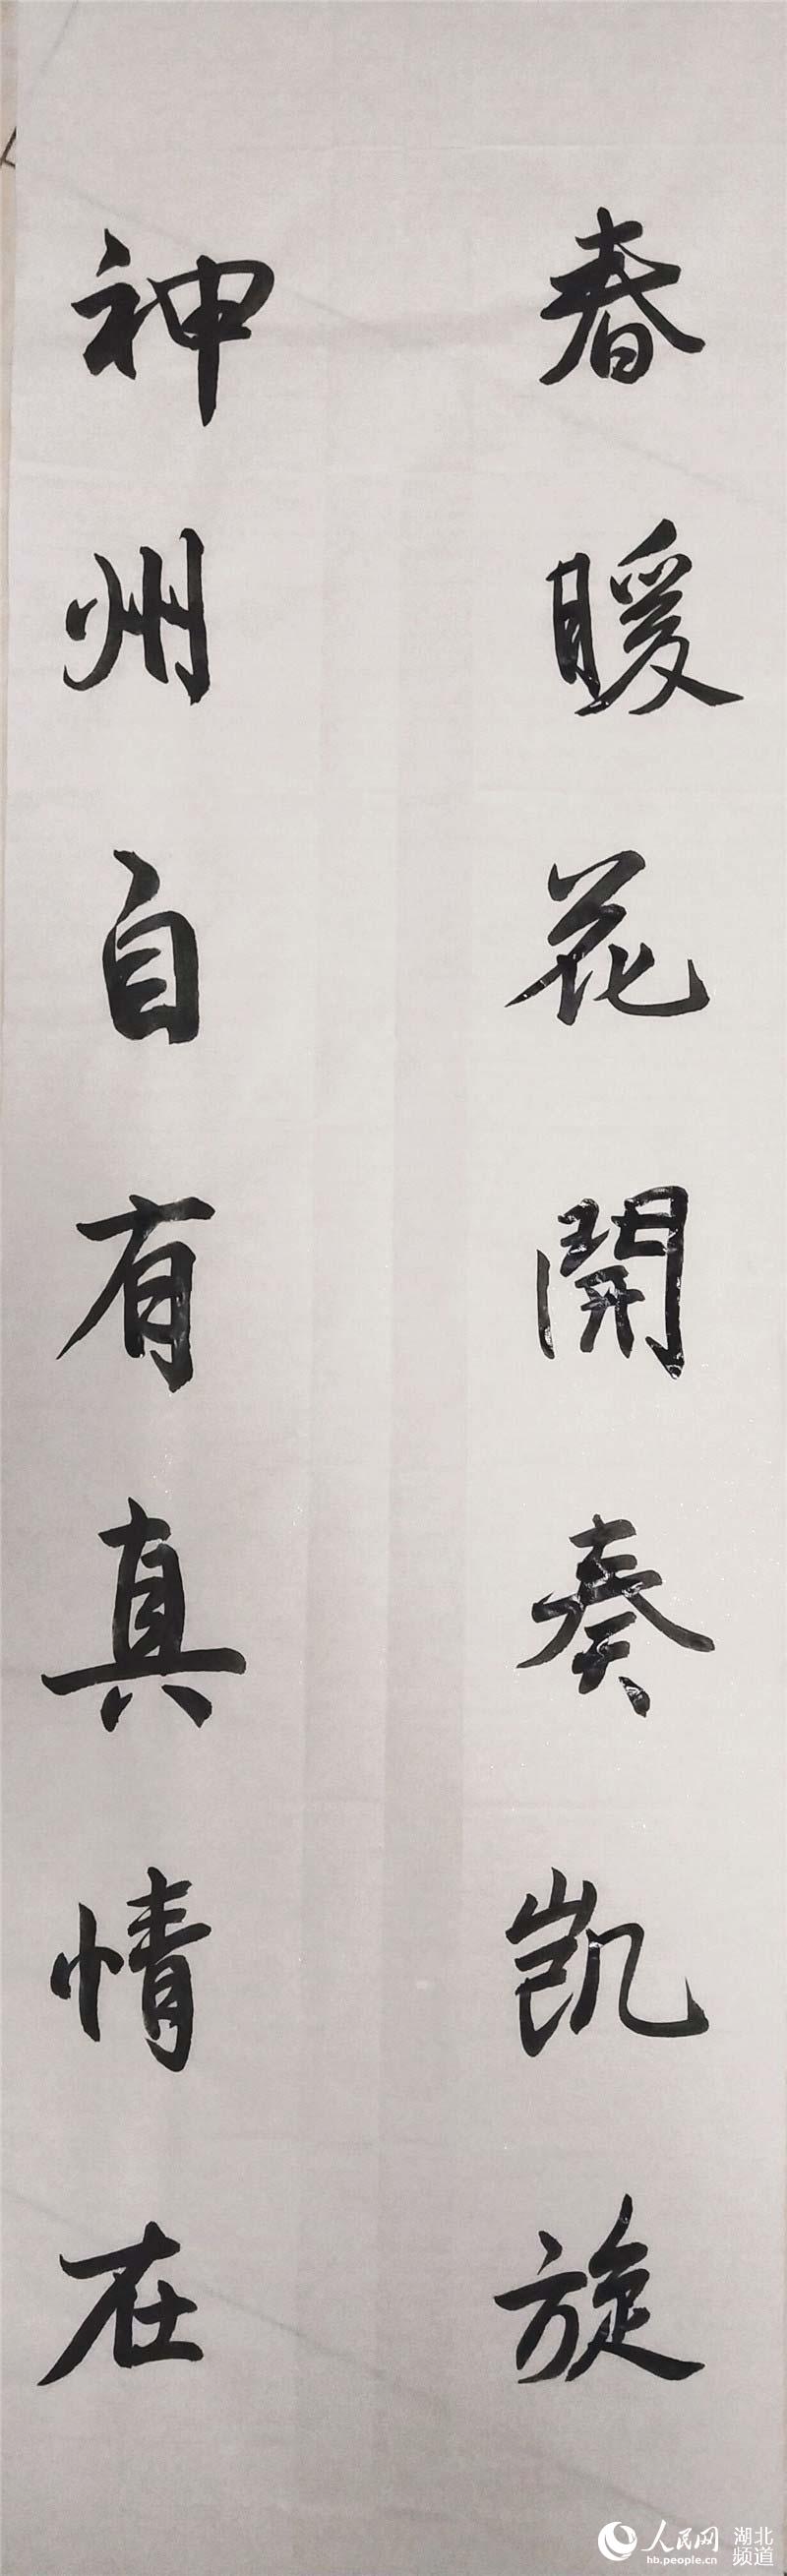 春暖花開奏凯旋
神州自有真情在
人民网 湖北频道
hb.people.cn